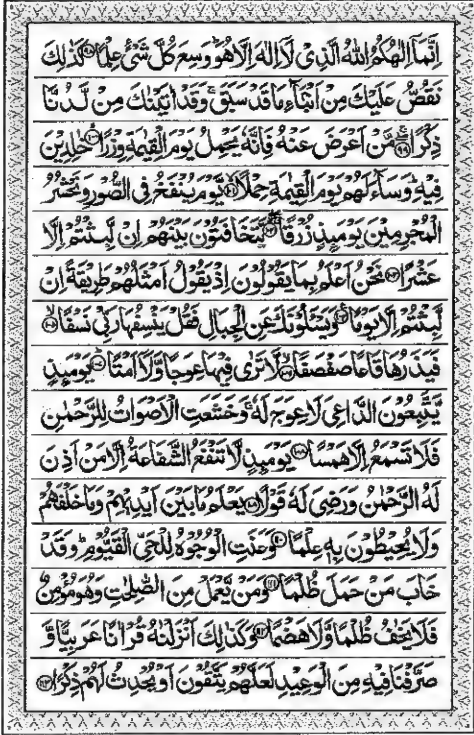 اِنَّمَاۤ اِلٰهُكُمُ اللّٰهُ الَّذِیْ لَاۤ اِلٰهَ اِلَّا هُوَؕ وَسِعَ كُلَّ شَیْءٍ عِلْمًا ۹۸ كَذٰلِكَ
نَقُصُّ عَلَیْكَ مِنْ اَنْۢبَآءِ مَا قَدْ سَبَقَۚ وَقَدْ اٰتَیْنٰكَ مِنْ لَّدُنَّا
ذِكْرًا ۹۹ مَنْ اَعْرَضَ عَنْهُ فَاِنَّهٗ یَحْمِلُ یَوْمَ الْقِیٰمَةِ وِزْرًا ۱۰۰ خٰلِدِیْنَ
فِیْهِؕ وَسَآءَ لَهُمْ یَوْمَ الْقِیٰمَةِ حِمْلًا ۱۰۱ یَّوْمَ یُنْفَخُ فِی الصُّوْرِ وَنَحْشُرُ
الْمُجْرِمِیْنَ یَوْمَىِٕذٍ زُرْقًا ۱۰۲ یَّتَخَافَتُوْنَ بَیْنَهُمْ اِنْ لَّبِثْتُمْ اِلَّا
عَشْرًا ۱۰۳ نَحْنُ اَعْلَمُ بِمَا یَقُوْلُوْنَ اِذْ یَقُوْلُ اَمْثَلُهُمْ طَرِیْقَةً اِنْ
لَّبِثْتُمْ اِلَّا یَوْمًا ۱۰۴ وَیَسْـَٔلُوْنَكَ عَنِ الْجِبَالِ فَقُلْ یَنْسِفُهَا رَبِّیْ نَسْفًا ۱۰۵
فَیَذَرُهَا قَاعًا صَفْصَفًا ۱۰۶ لَّا تَرٰی فِیْهَا عِوَجًا وَّلَاۤ اَمْتًا ۱۰۷ یَوْمَىِٕذٍ
یَّتَّبِعُوْنَ الدَّاعِیَ لَا عِوَجَ لَهٗۚ وَخَشَعَتِ الْاَصْوَاتُ لِلرَّحْمٰنِ
فَلَا تَسْمَعُ اِلَّا هَمْسًا ۱۰۸ یَوْمَىِٕذٍ لَّا تَنْفَعُ الشَّفَاعَةُ اِلَّا مَنْ اَذِنَ
لَهُ الرَّحْمٰنُ وَرَضِیَ لَهٗ قَوْلًا ۱۰۹ یَعْلَمُ مَا بَیْنَ اَیْدِیْهِمْ وَمَا خَلْفَهُمْ
وَلَا یُحِیْطُوْنَ بِهٖ عِلْمًا ۱۱۰ وَعَنَتِ الْوُجُوْهُ لِلْحَیِّ الْقَیُّوْمِؕ وَقَدْ
خَابَ مَنْ حَمَلَ ظُلْمًا ۱۱۱ وَمَنْ یَّعْمَلْ مِنَ الصّٰلِحٰتِ وَهُوَ مُؤْمِنٌ
فَلَا یَخٰفُ ظُلْمًا وَّلَا هَضْمًا ۱۱۲ وَكَذٰلِكَ اَنْزَلْنٰهُ قُرْاٰنًا عَرَبِیًّا وَّ
صَرَّفْنَا فِیْهِ مِنَ الْوَعِیْدِ لَعَلَّهُمْ یَتَّقُوْنَ اَوْ یُحْدِثُ لَهُمْ ذِكْرًا ۱۱۳